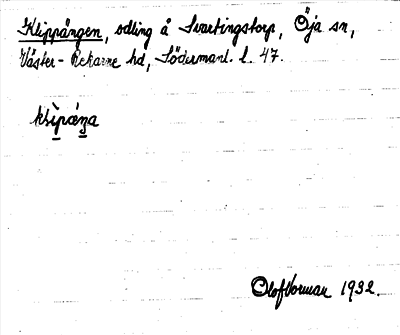 Klippängen, odling å Svartingstorp, Öja sn,
Väster-Rekarne hd, Södermanl. l. 47.
Olof Vorman 1932.